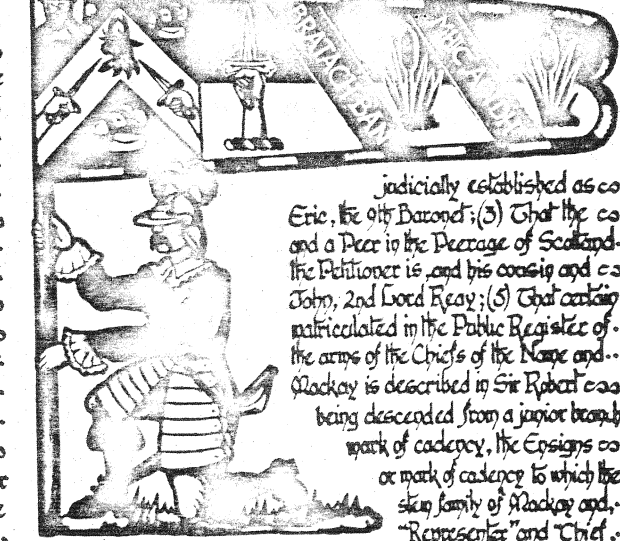 BRATACH BAN
judicially established as
Eric, the 9th Baronet; (3) That the
and a Peer in the Peerage of Scotland
the Petitioner is, and his cousin and
John, 2nd Lord Reay; (5) That certain
matriculated in the Public Register of
the arms of the Chiefs of the Name and
Mackay is described in Sir Robert
being descended from a junior branch
mark of cadency, the Ensigns
or mark of cadency to which the
stem family of Mackay and,
"Representer" and "Chief